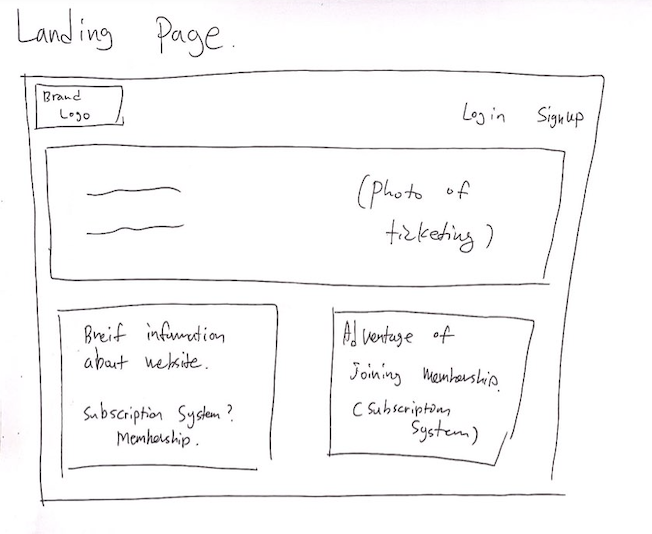 Landing Page.
Brand
Logo
Log in Signup
(Photo of
ticketing)
Breif infumation
about website.
Subscription System?
Membership.
Advantage of
Joining Membership.
(Subscription
System)